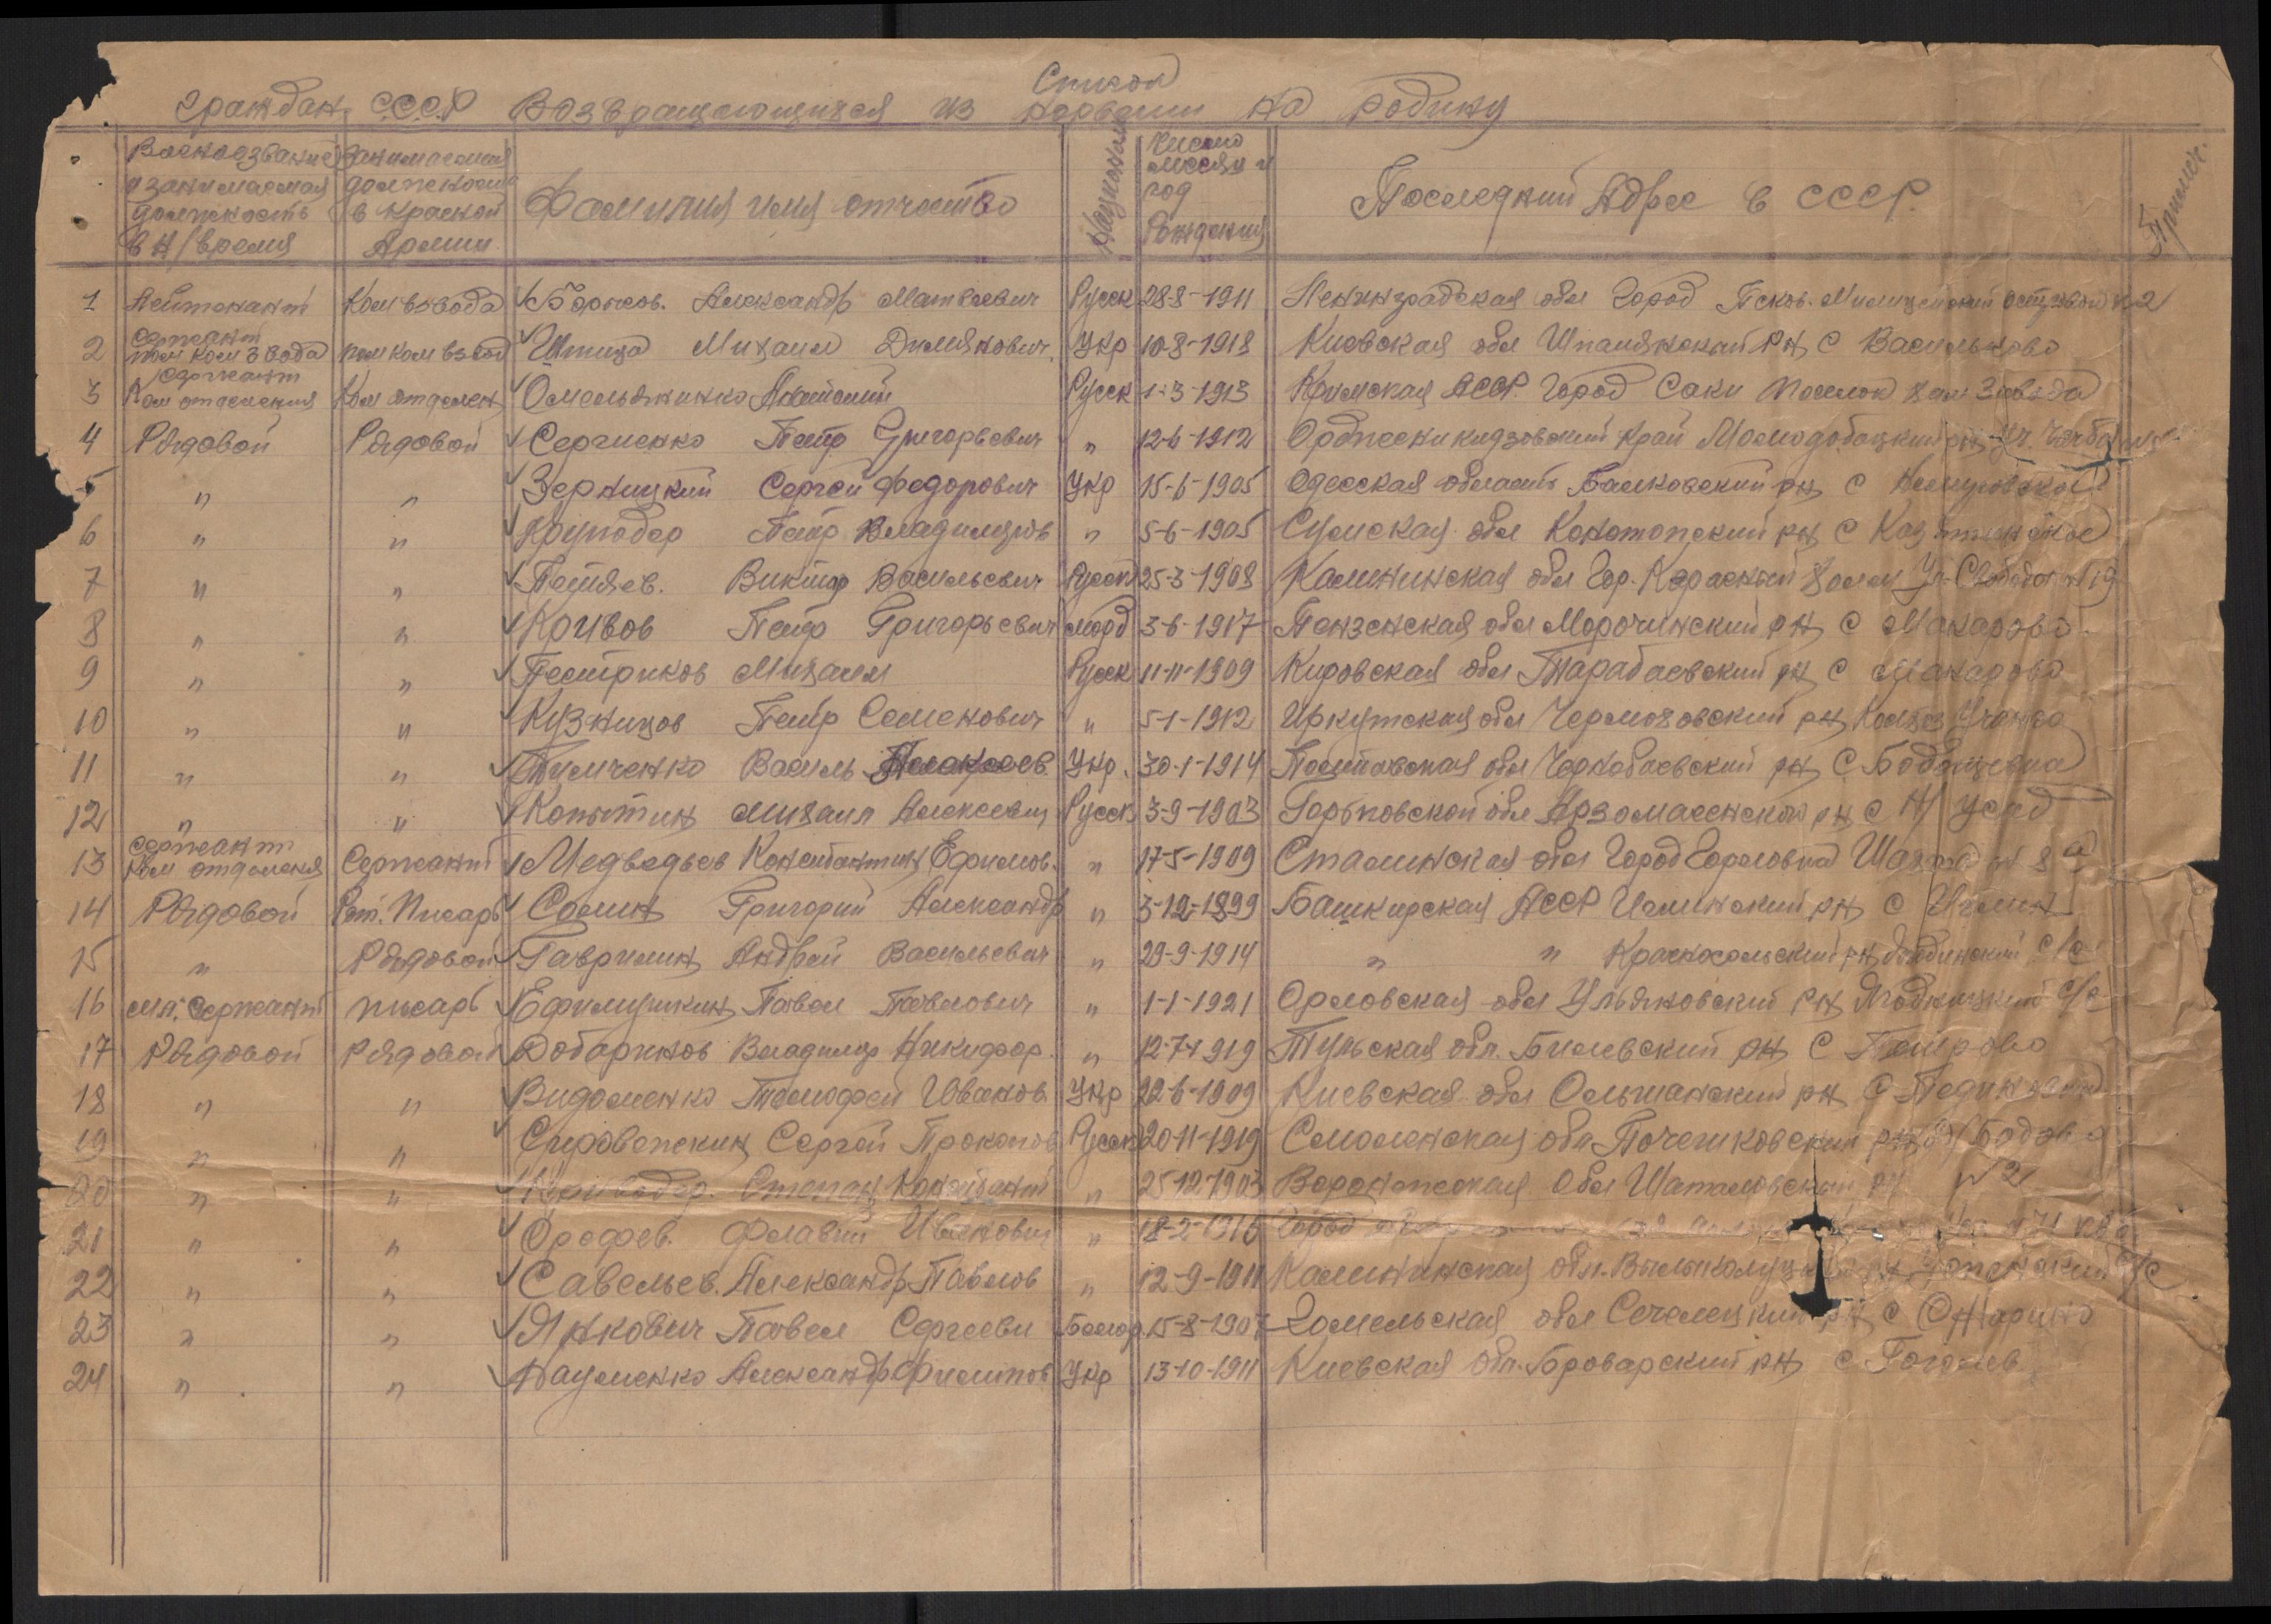 Список
Граждан С.С.С.Р Возвращающихся из Норвегии на родину
Военоезвание и занимаемая должность в н/время
Занимаемая должность в Красной Армии.
Фамилия имя отчество
Национальн
Число месяц и год Рождения
Последний Адрес в СССР.
Примеч.
1 Лейтенант Ком взвода Борисов. Александр Матвеевич Русск 28-8-1911 Ленинградская обл Город Псков.
2 Сержант пом ком взвода пом ком взвод Птица Михаил Демянович Укр 10-8-1918 Киевская обл Шполянский рн С Васильково
3 Сержант Ком отделения Ком отделен Омельяниенко Анатолий Русск 1-3-1913 Крымская АССР Город Саки поселок Хим Завода
4 Рядовой Рядовой Сергиенко Петр Григорьевич " 12-6-1912 Ордженикидзовский край
5 " " Зерницкий Сергей Федорович Укр 15-6-1905 Одесская область Балковский рн с
6 " " Круподер Петр Владимиров " 5-6-1905 Сумская обл Конотопский рн с
7 " " Петяев. Виктор Васильевич Русск 25-3-1908 Калининская обл Гор. Красный Холм Ул. Свободы № 19
8 " " Кривов Петр Григорьевич морд 3-6-1917 Пензенская обл Морочинский рн с Макарово
9 " " Пестриков Михаил Русск 11-11-1909 Кировская обл Тарабаевский рн с Макарово
10 " " Кузницов Петр Семенович " 5-1-1912 Иркутская обл Черемховский рн
11 " " Тимченко Василь Алексеев. Укр. 30-1-1914 Полтавская обл Чернобаевский рн С.
12 " " Копытин Михаил Алексеевич Русск 3-9-1903 Горьковской обл Арзомасенской рн с Н/ усад
13 сержант ком отделения Сержант Медведьев Константин Ефимов. " 17-5-1909 Сталинская обл Город Горловка Шахта № 8 а
14 Рядовой Рот. Писарь Сомин Григорий Александр " 3-12-1899 Башкирская АССР Иглинский рн с Иглин
15 " Рядовой Гаврилин Андрей Васильевич " 29-9-1914 " " Красносольский рн с/с
16 мл. Сержант писарь Ефимушкин Павел Павлович " 1-1-1921 Орловская обл Ульяновский рн Ягоднинский с/с
17 Рядовой Рядовой Добариков Владимир Никифор. " 12-7-1919 Тульская обл. Билевский рн С Петрово
18 " " Видоменко Тимофей Иванов Укр 22-6-1909 Киевская обл Ольшанский рн С
19 " " Сыровепскин Сергей Прокопов Русск 20-11-1919 Смоленская обл
20 " " Кривобор. Степан Констант " 25-12-1903 Воронежская Обл Шаталовский рн № 2
21 " " Орефев. Флавий Иванович " 18-2-1916 Город
22 " " Савельев. Александр Павлов " 12-9-1911 Калининская обл. с/с
23 " " Янкович Павел Сергееви Белор. 15-8-1907 Гомельская обл рн с
24 " " Науменко Александр Филипов Укр 13-10-1911 Киевская обл. Броварский рн с Гоголев.